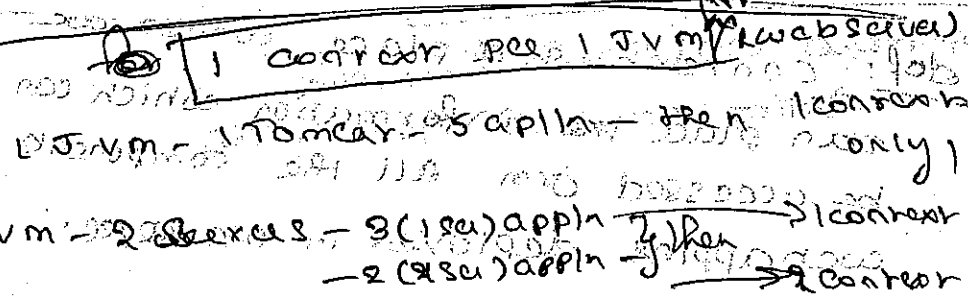 1 context per 1 JVM (webserver)
1 JVM - 1 Tomcat - 5 appln - then 1 context
only
VM - 2 Servers - 3 (1 ser) appln } then → 1 context
- 2 (2 ser) appln - → 2 context